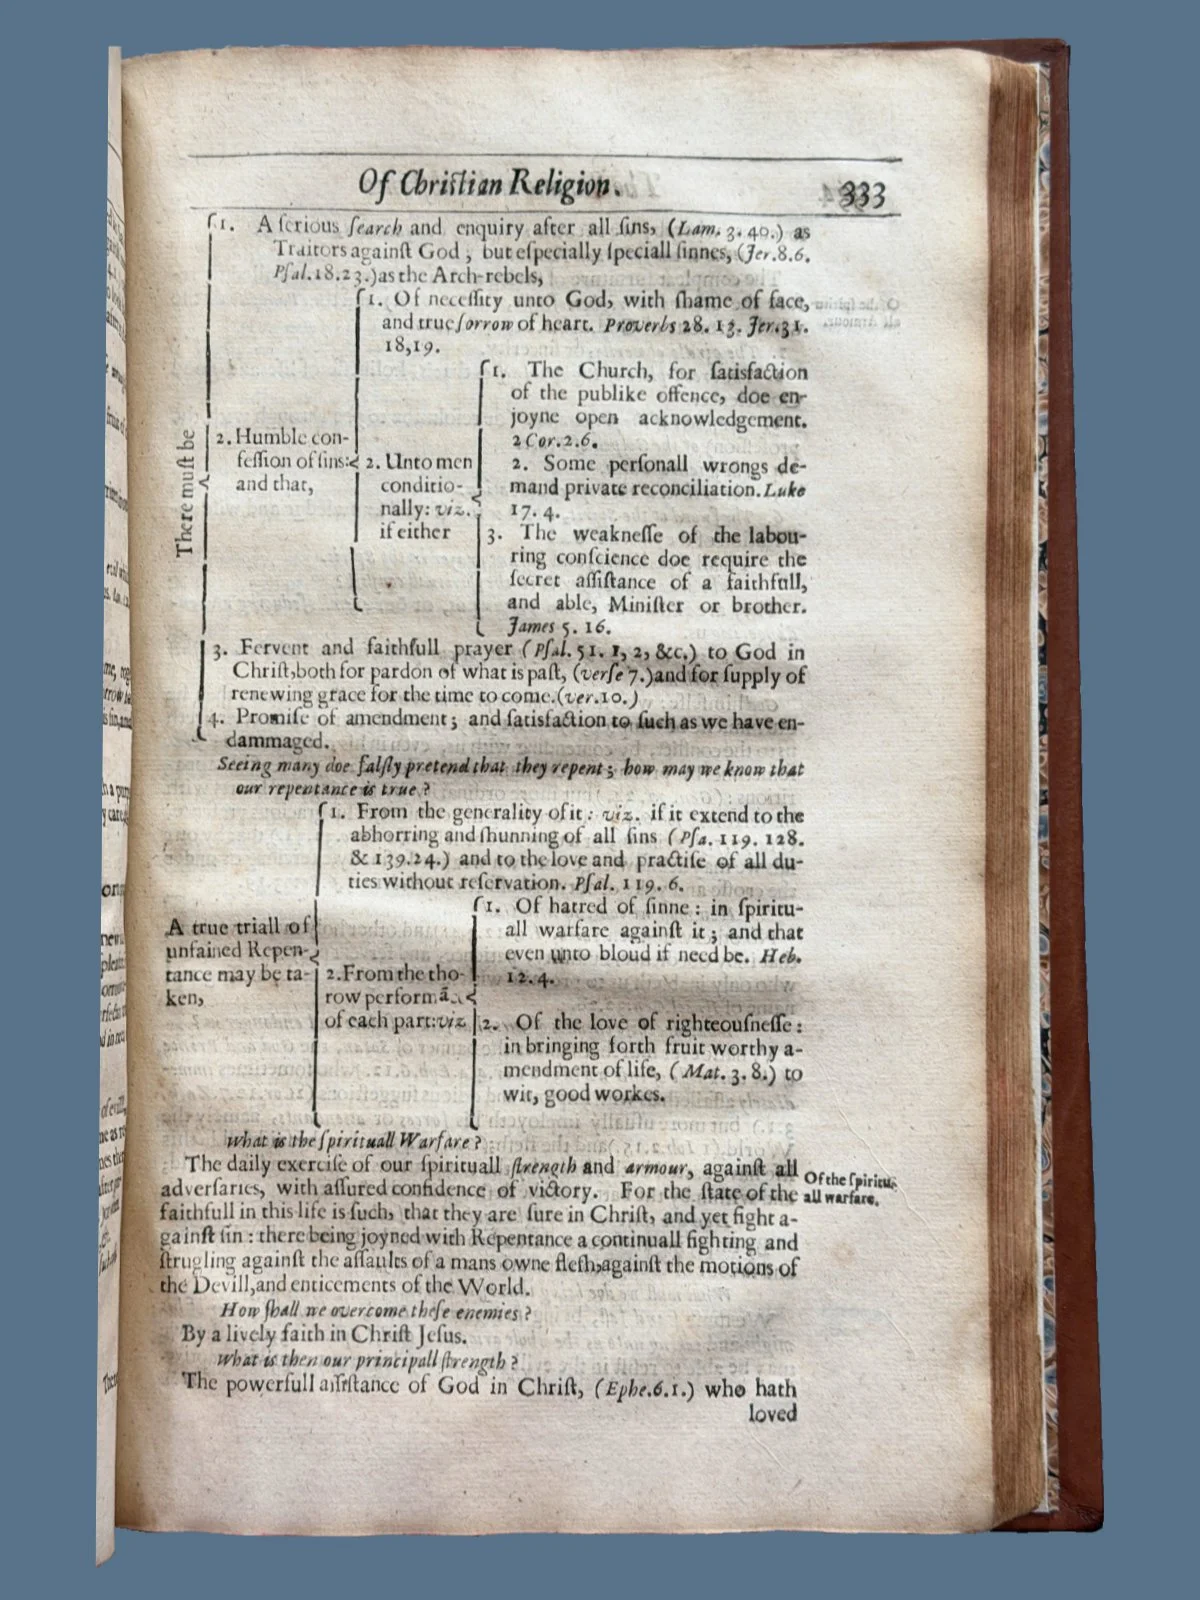 Of Chriſtian Religion. 333
1. A ſerious ſearch and enquiry after all ſins, (Lam. 3. 40.) as
Traitors againſt God, but eſpecially ſpeciall ſinnes, (Jer.8.6.
Pſal.18.23.) as the Arch-rebels,
There muſt be
2. Humble con-
feſſion of ſins:
and that,
1. Of neceſſity unto God, with ſhame of face,
and true ſorrow of heart. Proverbs 28. 13. Jer.31.
18,19.
2. Unto men
conditio-
nally: viz.
if either
1. The Church, for ſatisfaction
of the publike offence, doe en-
joyne open acknowledgement.
2 Cor.2.6.
2. Some perſonall wrongs de-
mand private reconciliation. Luke
17. 4.
3. The weakneſſe of the labou-
ring conſcience doe require the
ſecret aſſiſtance of a faithfull,
and able, Miniſter or brother.
James 5. 16.
3. Fervent and faithfull prayer (Pſal. 51. 1, 2, &c.) to God in
Chriſt, both for pardon of what is paſt, (verſe 7.) and for ſupply of
renewing grace for the time to come. (ver.10.)
4. Promiſe of amendment; and ſatisfaction to ſuch as we have en-
dammaged.
Seeing many doe falſly pretend that they repent; how may we know that
our repentance is true?
A true triall of
unfained Repen-
tance may be ta-
ken,
1. From the generality of it: viz. if it extend to the
abhorring and ſhunning of all ſins (Pſa. 119. 128.
& 139.24.) and to the love and practiſe of all du-
ties without reſervation. Pſal. 119. 6.
2. From the tho-
row performā
of each part: viz
1. Of hatred of ſinne: in ſpiritu-
all warfare againſt it; and that
even unto bloud if need be. Heb.
12.4.
2. Of the love of righteouſneſſe:
in bringing forth fruit worthy a-
mendment of life, (Mat. 3. 8.) to
wit, good workes.
What is the ſpirituall Warfare?
The daily exerciſe of our ſpirituall ſtrength and armour, againſt all
adverſaries, with aſſured confidence of victory. For the ſtate of the
faithfull in this life is ſuch, that they are ſure in Chriſt, and yet fight a-
gainſt ſin: there being joyned with Repentance a continuall fighting and
ſtrugling againſt the aſſaults of a mans owne fleſh, againſt the motions of
the Devill, and enticements of the World.
Of the ſpiritu-
all warfare.
How ſhall we overcome theſe enemies?
By a lively faith in Chriſt Jeſus.
What is then our principall ſtrength?
The powerfull aſſiſtance of God in Chriſt, (Ephe.6.1.) who hath
loved